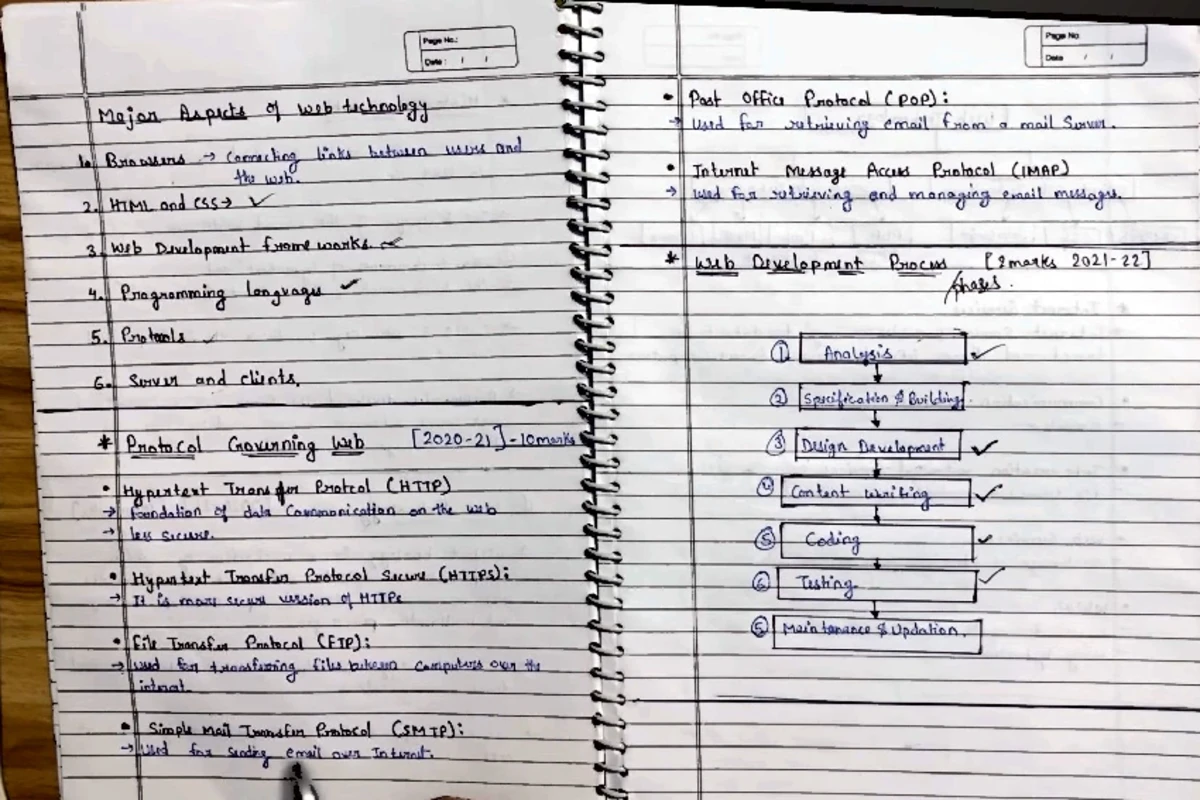 Page No.:
Date: / /
Major Aspects of web technology
1. Browsers → Connecting links between users and
the web.
2. HTML and CSS → ✓
3. Web Development frame works. ✓
4. Programming languages ✓
5. Protocols ✓
6. Server and clients.
* Protocol Governing Web [2020-21] - 10marks
• Hypertext Transfer Protcol (HTTP)
→ foundation of data Communication on the web
→ less secure.
• Hypertext Transfer Protocol Secure (HTTPS):
→ It is more secure version of HTTPs
• File Transfer Protocol (FTP):
→ Used for transferring files between computers over the
internet.
• Simple Mail Transfer Protocol (SMTP):
→ Used for sending email over Internet.
Page No
Date / /
• Post Office Protocol (POP):
→ Used for retrieving email from a mail Server.
• Internet Message Access Protocol (IMAP)
→ Used for retrieving and managing email messages.
* Web Development Process [2marks 2021-22]
phases.
① Analysis ✓
② Specification & Building
③ Design Development ✓
④ Content Writing ✓
⑤ Coding ✓
⑥ Testing ✓
⑤ Maintenance & Updation.